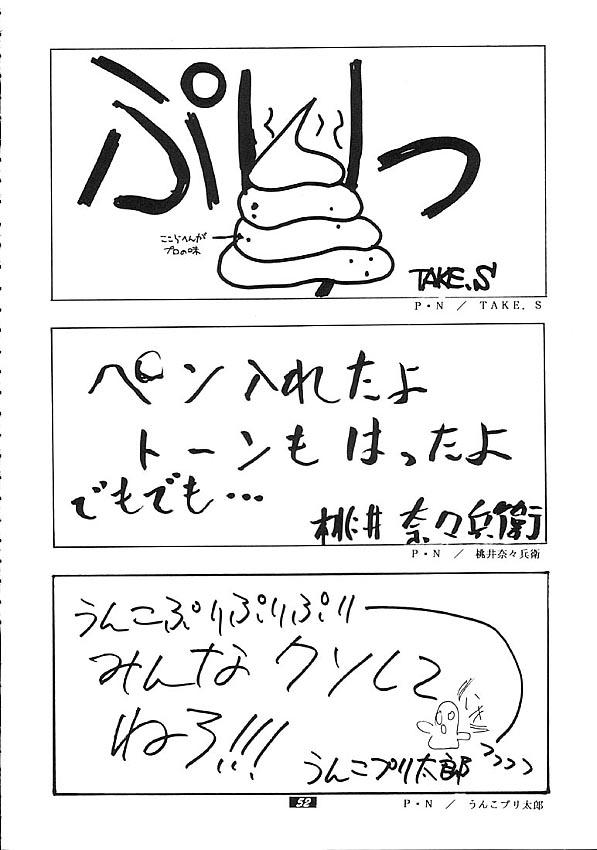 ぷりっ
ここらへんが
プロの味
TAKE.S
P・N ／ TAKE. S
ペン入れたよ
トーンも はったよ
でもでも…
桃井 奈々兵衛
P・N ／ 桃井奈々兵衛
うんこぷりぷりぷり
みんな クソして
ねろ!!!
うんこプリ太郎
P・N ／ うんこプリ太郎
52